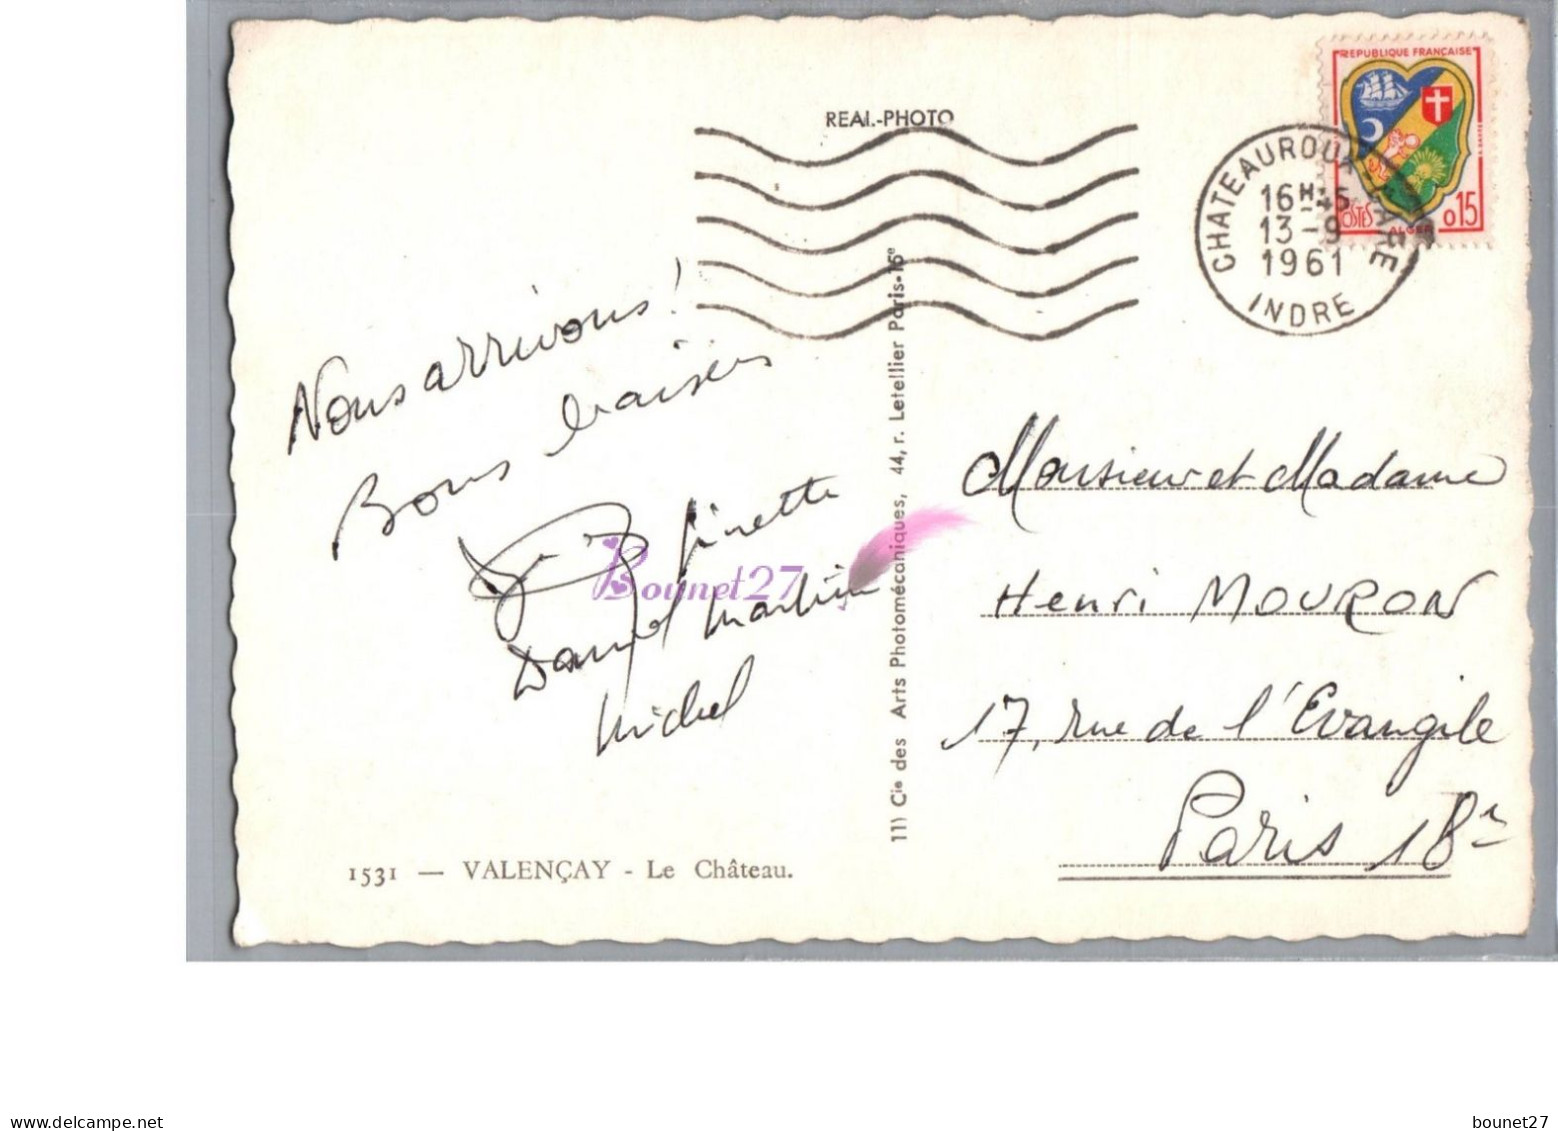 REAL-PHOTO
REPUBLIQUE FRANÇAISE
POSTES
ALGER
0,15
CHATEAUROUX-GARE
16H45
13-9
1961
INDRE
Nous arrivons!
Bons baisers
Ginette
Daniel Martine
Michel
Bounet27
11) Cie des Arts Photomécaniques, 44, r. Letellier Paris-15e
Monsieur et Madame
Henri MOURON
17, rue de l'Evangile
Paris 18e
1531 — VALENÇAY - Le Château.
www.delcampe.net
bounet27